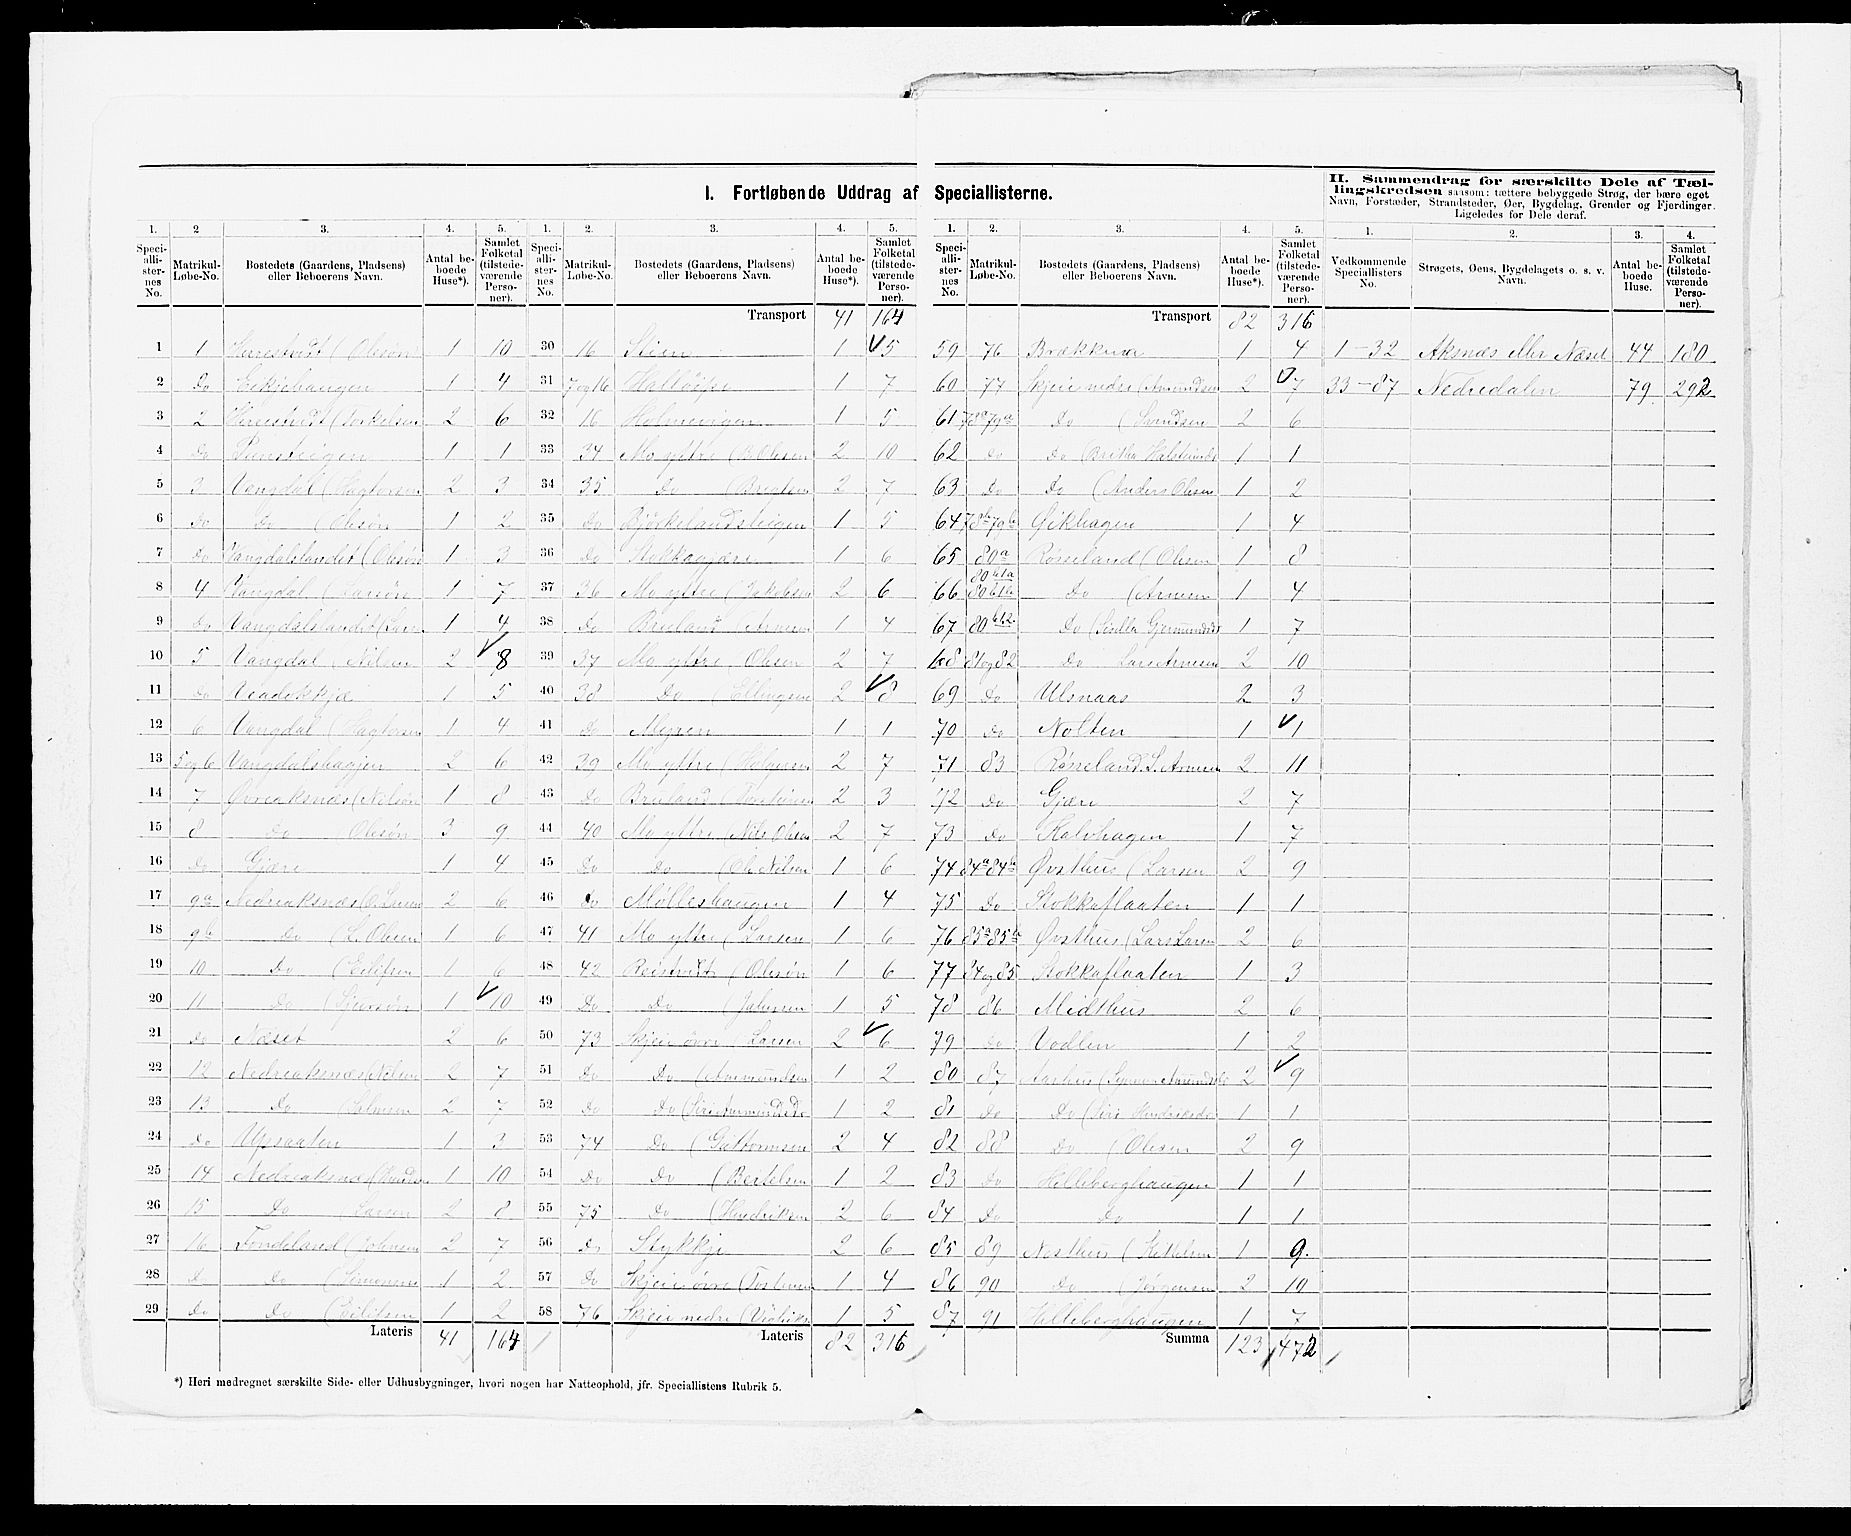 I. Fortløbende Uddrag af Speciallisterne.
II. Sammendrag for særskilte Dele af Tællingskredsen saasom: tættere bebyggede Strøg, der bære eget Navn, Forstæder, Strandsteder, Øer, Bygdelag, Grender og Fjerdinger. Ligeledes for Dele deraf.
1. 2 3. 4. 5. 1. 2. 3. 4. 5. 1. 2. 3. 4. 5. 1. 2. 3. 4.
Speciallisternes No. Matrikul-Løbe-No. Bostedets (Gaardens, Pladsens) eller Beboerens Navn. Antal beboede Huse*). Samlet Folketal (tilstedeværende Personer).
Speciallisternes No. Matrikul-Løbe-No. Bostedets (Gaardens, Pladsens) eller Beboerens Navn. Antal beboede Huse*). Samlet Folketal (tilstedeværende Personer).
Speciallisternes No. Matrikul-Løbe-No. Bostedets (Gaardens, Pladsens) eller Beboerens Navn. Antal beboede Huse*). Samlet Folketal (tilstedeværende Personer).
Vedkommende Speciallisters No. Strøgets, Øens, Bygdelagets o. s. v. Navn. Antal beboede Huse. Samlet Folketal (tilstedeværende Personer).
1 1 (Olesøn 1 10
2 Do 1 4
3 2 (Torkelsen 2 6
4 Do 1 1
5 3 Vangdal (Hagtorsen 2 3
6 Do Do (Olesøn 1 2
7 Do Vangdalslandet (Olesøn 1 3
8 4 Vangdal (Larsøn 1 7
9 Do Vangdalslandet (Lars 1 4
10 5 Vangdal (Nilsen 2 8
11 Do 1 5
12 6 Vangdal (Hagtorsen 1 4
13 5 og 6 Vangdalshagjen 2 6
14 7 Øvreaksnæs (Nelsøn 1 8
15 8 Do (Olesøn 3 9
16 Do Gjære 1 4
17 9a Nedreaksnæs (O. Larsen 2 6
18 9b Do (L. Olsen 1 6
19 10 Do (Eilifsen 1 6
20 11 Do 1 10
21 Do Næset 2 6
22 12 Nedreaksnæs (Nelsen 2 7
23 13 Do 2 7
24 Do Upsaaten 1 3
25 14 Nedreaksnæs 1 10
26 15 Do (Larsen 2 8
27 16 (Johnsen 2 7
28 D Do (Simonsen 1 2
29 Do Do 1 2
Lateris 41 164
Transport 41 164
30 16 1 5
31 7 og 16 1 7
32 16 Holmevigen 1 5
33 34 Mo yttre (B Olesen 2 10
34 35 Do 2 7
35 Do Bjørkelandsteigen 1 5
36 Do Stokkagjære 1 6
37 36 Mo yttre (Jakobsen 2 6
38 Do Bruland (Arnesen 1 4
39 37 Mo yttre (Olesen 2 7
40 38 Do (Ellingsen 2 8
41 Do Myren 1 1
42 39 Mo yttre (Holgersen 2 7
43 Do Bruland 2 3
44 40 Mo yttre (Nils Olsen 2 7
45 Do Do (Ole Nelsen 1 6
46 Do Mølleshaugen 1 4
47 41 Mo yttre (Larsen 1 6
48 42 (Olesøn 1 6
49 Do Do (Johnsen 1 5
50 73 Skjeie øvre (Larsen 2 6
51 Do Do (Aamundsen 1 2
52 Do Do (Siri Aamundsd 1 2
53 74 Do (Guttormsen 2 4
54 Do Do (Bertelsen 1 2
55 75 Do (Hendriksen 2 6
56 Do Stykkje 2 6
57 Do Skjeie øvre 1 4
58 76 Skjeie nedre 1 5
Lateris 82 316
Transport 82 316
59 76 1 4
60 77 Skjeie nedre (Amundsen 2 7
61 78a 79a Do (Svendsen 2 6
62 Do Do (Britha 1 1
63 Do Do (Anders Olesen 1 2
64 78b 79b Øikhagen 1 4
65 80a Røsseland (Olesen 1 8
66 80b1a 80b1b Do (Arnesen 1 4
67 80b12 Do (Sisella Gjermundsd 1 7
68 81 og 82 Do Lars Arnesen 2 10
69 Do Ulsnaas 2 3
70 Do Nolten 1 1
71 83 Røsseland L. Arnesen 2 11
72 Do Gjære 2 7
73 Do Kalvhagen 1 7
74 84a 84b Øvsthus (Larsen 2 9
75 Do Stokkaflaaten 1 1
76 85a 85b Øvsthus (Lars Larsen 2 6
77 84 og 85 Stokkaflaaten 1 3
78 86 Midthus 2 6
79 Do Vodlen 1 2
80 87 Aarhus 2 9
81 Do Do (Siri Hendriksd 1 1
82 88 Do (Olesen 2 9
83 Do Hilleberghaugen 1 1
84 Do Do 1 1
85 89 Nesthus (Kittelsen 1 9.
86 90 Do (Jørgensen 2 10
87 91 Hilleberghaugen 1 7
Summa 123 472
1-32 Aksnæs eller Næset 44 180
33-87 Nedredalen 79 292
*) Heri medregnet særskilte Side- eller Udhusbygninger, hvori nogen har Natteophold, jfr. Speciallistens Rubrik 5.